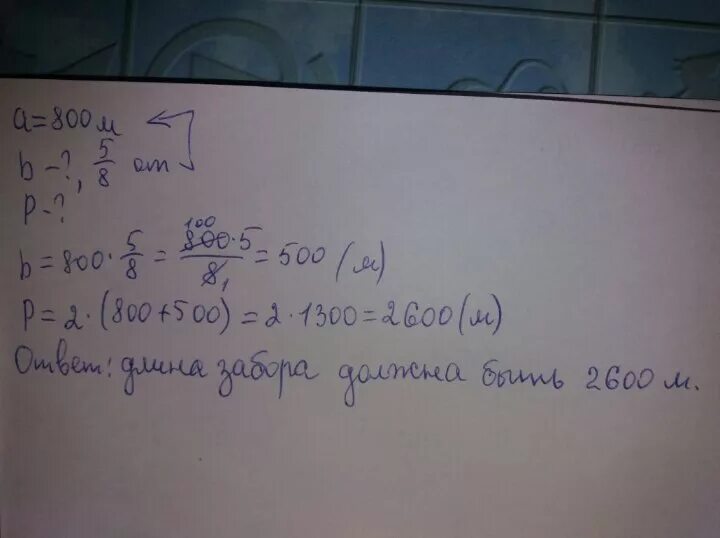 a=800м
b-?, 5/8 от
P-?
b = 800 · 5/8 = 800·5/8 = 500 (м)
P = 2·(800+500) = 2·1300 = 2600 (м)
Ответ: длина забора должна быть 2600 м.